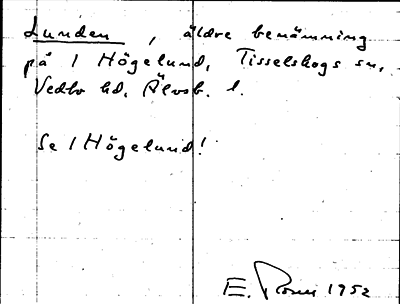 Lunden, äldre benämning
på 1 Högelund, Tisselskogs sn,
Vedbo hd, Älvsb. l.
Se 1 Högelund!
E. 1952